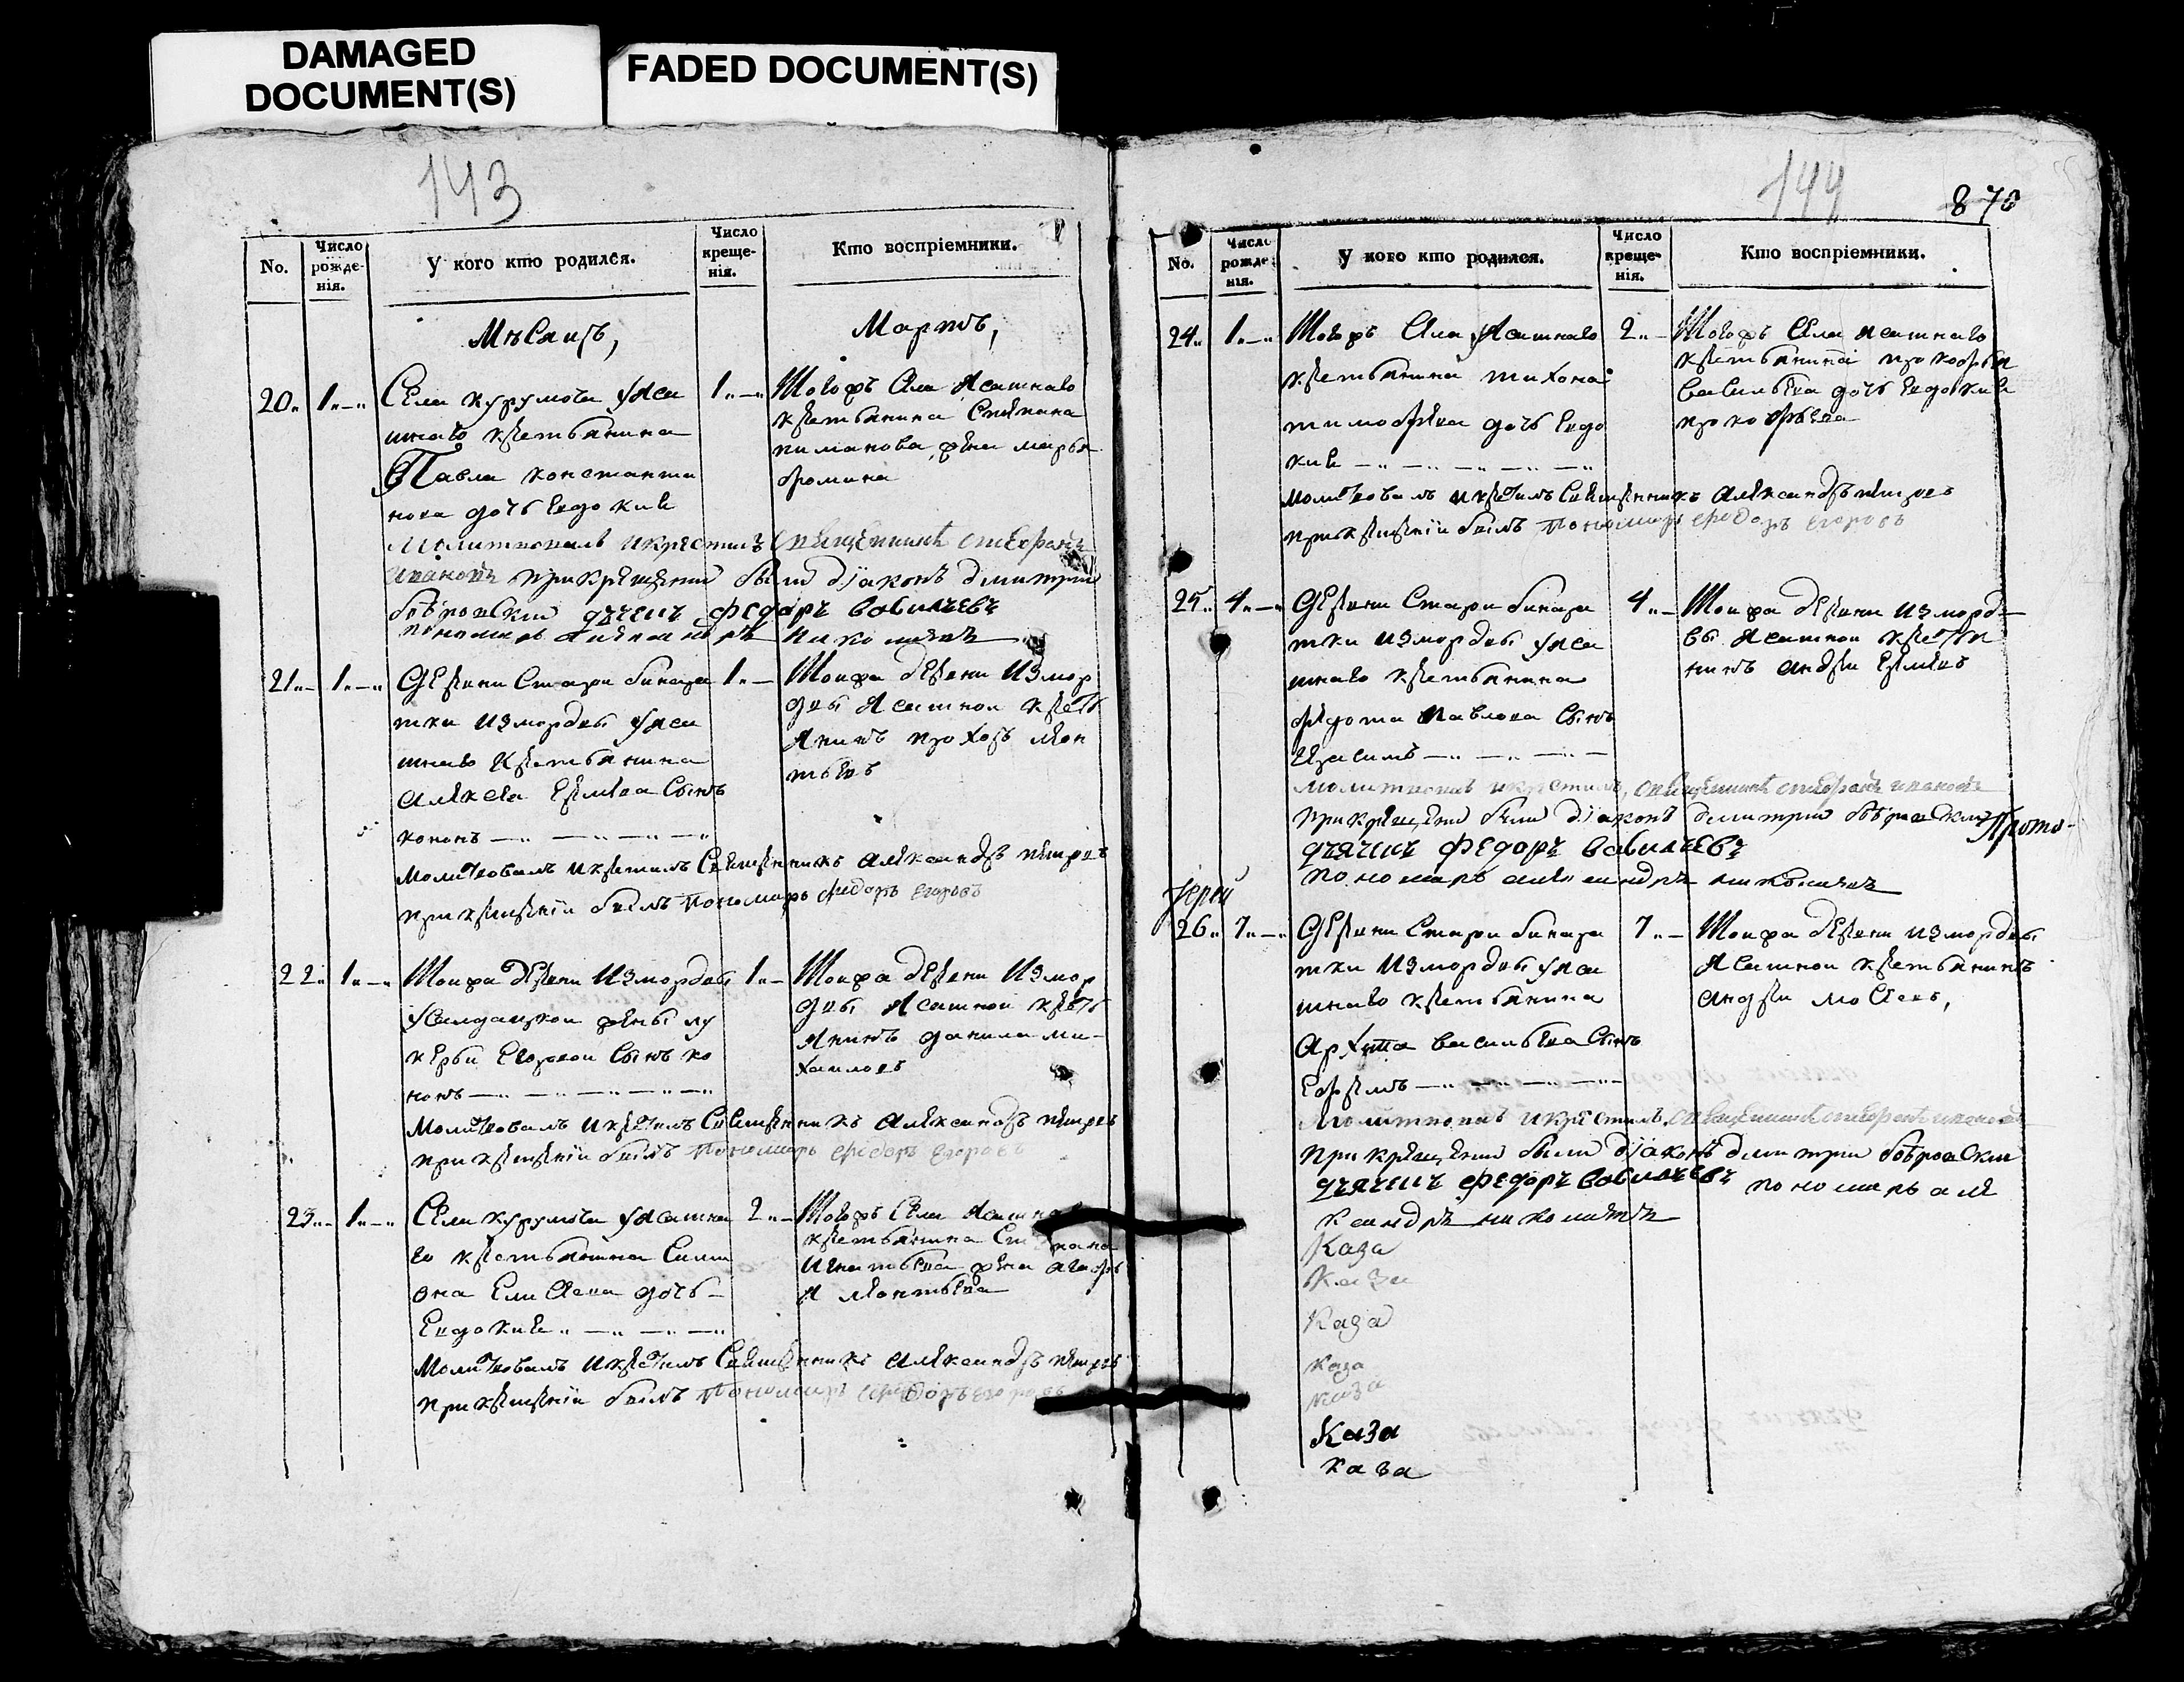 DAMAGED
DOCUMENT(S)
FADED DOCUMENT(S)
143
No.
Число рожденія.
У кого кто родился.
Число крещенія.
Кто воспріемники.
Мѣсяцъ,
Мартъ,
20 1
Села курумоча уяса
шнаго крестьянина
Павла константи
нова дочь Евдокия
1
Тогожъ села Ясашнаго
крестьянина Степана
пиманова жена марья
фомина
Молитвовалъ икрестилъ Священникъ стефанъ
ивановъ прикрещении были діаконъ димитрии
бобровскии дьячекъ федоръ вавилычевъ
пономарь александръ николаевъ
21 1
деревни Стари бинара
тки измордвы уяса
шнаго крестьянина
алексея Ермева Сынъ
кононъ
1
Тоижа деревни измор
двы Ясашнои кресть
янинъ прохоръ леон
тьевъ
Молитвовалъ икрестилъ Священникъ александръ петровъ
прикрещеніи былъ пономарь федоръ егоровъ
22 1
Тоижа деревни измордвы
усалдацкои жены лу
керьи Егоровои Сынъ ко
нонъ
1
Тоижа деревни измор
двы Ясашнои кресть
янинъ данила ми-
хаиловъ
Молитвовалъ икрестилъ Священникъ александръ петровъ
прикрещеніи былъ пономарь федоръ егоровъ
23 1
Села курумоча уясашна
го крестьянина Сими
она Елисеева дочь
Евдокия
2
Тогожъ Села
крестьянина
игнатьева жена агафь
я леонтьева
Молитвовалъ икрестилъ Священникъ александръ петровъ
прикрещеніи былъ пономарь федоръ егоровъ
144
870
No.
Число рожденія.
У кого кто родился.
Число крещенія.
Кто воспріемники.
24 1
Тогожъ Села уясашнаго
крестьянина тихона
тимофеева дочь Евдо
кия
2
Тогожъ Села ясашнаго
крестьянина прокофья
васильева дочь Евдокия
прокофьева
молитвовалъ икрестилъ Священникъ александръ петровъ
прикрещеніи былъ пономарь федоръ егоровъ
25 4
деревни Стари бинара
тки измордвы уяса
шнаго крестьянина
федота павлова Сынъ
Герасимъ
4
Тоижа деревни измордвы
Ясашнои крестья
нинъ андреи Ермевъ
молитвовалъ икрестилъ священникъ стефанъ ивановъ
прикрещении были діаконъ димитрии бобровскии Прото-
дьячекъ федоръ вавилычевъ
пономарь александръ николаевъ
Іерей
26 7
деревни Стари бинара
тки измордвы уяса
шнаго крестьянина
архипа васильева Сынъ
Ефремъ
7
Тоижа деревни измордвы
Ясашнои крестьянинъ
андреи мосеевъ,
Молитвовалъ икрестилъ священникъ стефанъ ивановъ
прикрещении были діаконъ димитрии бобровскии
дьячекъ федоръ вавилычевъ пономарь але
ксандръ николаевъ
Каза
Каза
Каза
Каза
каза
Каза
каза